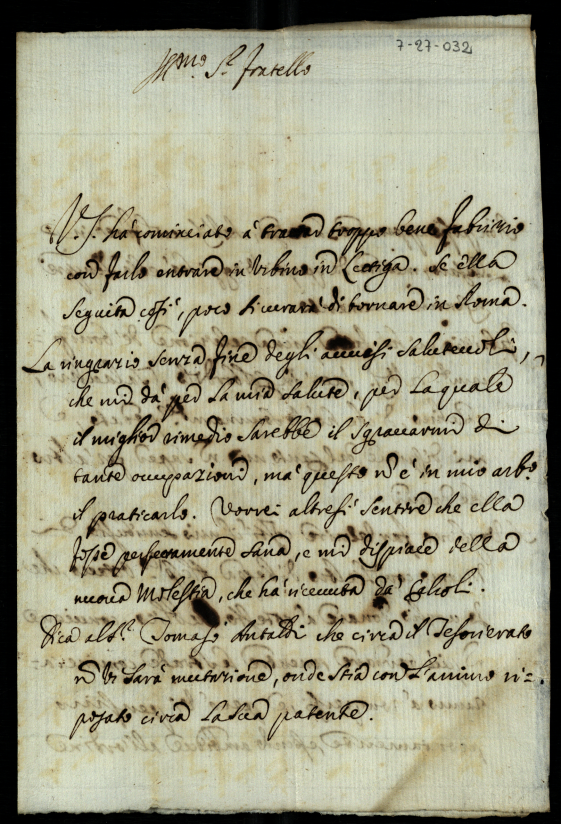 7-27-032
Ill.mo S.r fratello
V. S. ha cominciato à trattar troppo bene Fabrizio
con farlo entrare in Urbino in Lettiga. Se ella
seguita così, poco si curarà di tornare in Roma.
La ringrazio senza fine degli avvisi salutevoli,
che mi dà per la mia salute, per la quale
il miglior rimedio sarebbe il sgravarmi di
tante occupazioni, mà questo n è in mio arb.o
il praticarlo. Vorrei altresì sentire che ella
fosse perfettamente sana, e mi dispiace della
nuova molestia, che hà ricevuta dà
Dica al S.r Tomaso Antaldi che circa il Tesorierato
n vi sarà mutazione, onde stia con l'animo ri=
posato circa la sua patente.